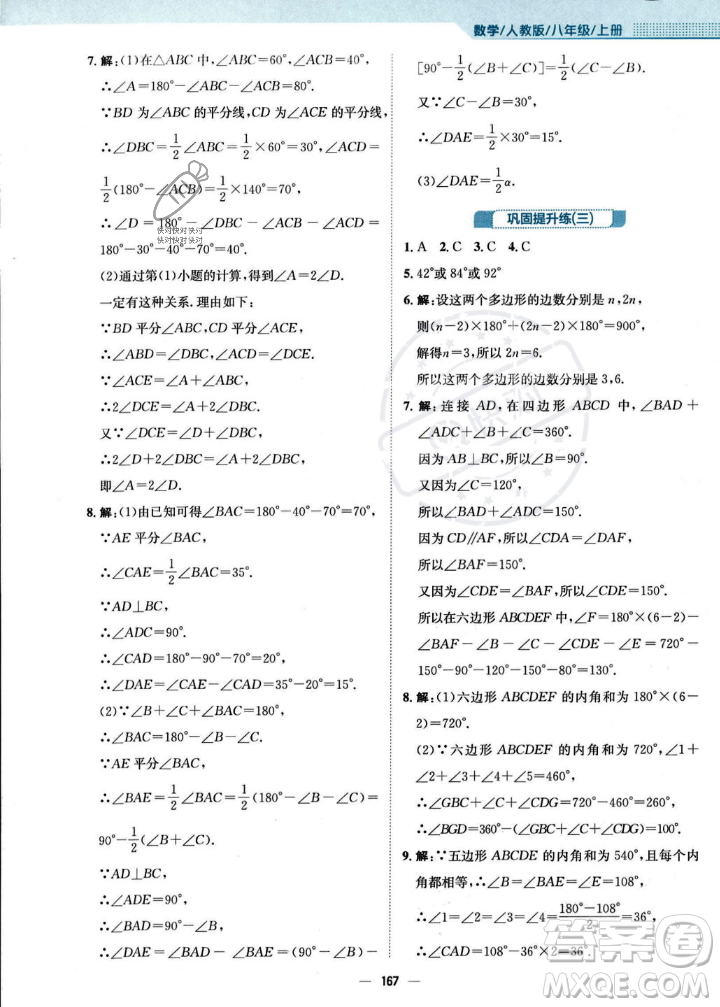 数学/人教版/八年级/上册
7. 解:(1)在△ABC中,∠ABC=60°,∠ACB=40°,
∴∠A=180°-∠ABC-∠ACB=80°.
∵BD 为∠ABC 的平分线,CD 为∠ACE 的平分线,
∴∠DBC=1/2∠ABC=1/2×60°=30°,∠ACD=
1/2(180°-∠ACB)=1/2×140°=70°,
∴∠D=180°-∠DBC-∠ACB-∠ACD=180°-
30°-40°-70°=40°.
(2)通过第(1)小题的计算,得到∠A=2∠D.
一定有这种关系.理由如下:
∵BD 平分∠ABC,CD 平分∠ACE,
∴∠ABD=∠DBC,∠ACD=∠DCE.
∵∠ACE=∠A+∠ABC,
∴2∠DCE=∠A+2∠DBC.
又∵∠DCE=∠D+∠DBC,
∴2∠D+2∠DBC=∠A+2∠DBC,
即∠A=2∠D.
8. 解:(1)由已知可得∠BAC=180°-40°-70°=70°,
∵AE 平分∠BAC,
∴∠CAE=1/2∠BAC=35°.
∵AD⊥BC,
∴∠ADC=90°.
∴∠CAD=180°-90°-70°=20°.
∴∠DAE=∠CAE-∠CAD=35°-20°=15°.
(2)∵∠B+∠C+∠BAC=180°,
∴∠BAC=180°-∠B-∠C.
∵AE 平分∠BAC,
∴∠BAE=1/2∠BAC=1/2(180°-∠B-∠C)=
90°-1/2(∠B+∠C).
∵AD⊥BC,
∴∠ADE=90°.
∴∠BAD=90°-∠B.
∴∠DAE=∠BAD-∠BAE=(90°-∠B)-
[90°-1/2(∠B+∠C)]=1/2(∠C-∠B).
又∵∠C-∠B=30°,
∴∠DAE=1/2×30°=15°.
(3)∠DAE=1/2α.
巩固提升练(三)
1. A 2. C 3. C 4. C
5. 42°或 84°或 92°
6. 解:设这两个多边形的边数分别是 n,2n,
则(n-2)×180°+(2n-2)×180°=900°,
解得 n=3,所以 2n=6.
所以这两个多边形的边数分别是 3,6.
7. 解:连接 AD,在四边形 ABCD 中,∠BAD+
∠ADC+∠B+∠C=360°.
因为 AB⊥BC,所以∠B=90°.
所以∠BAD+∠ADC+∠C=270°.
又因为∠C=120°,
所以∠BAD+∠ADC=150°.
因为 CD∥AF,所以∠CDA=∠DAF.
所以∠BAF=150°.
又因为∠CDE=∠BAF,所以∠CDE=150°.
所以在六边形 ABCDEF 中,∠F=180°×(6-2)-
∠BAF-∠B-∠C-∠CDE-∠E=720°-
150°-90°-120°-150°-80°=130°.
8. 解:(1)六边形 ABCDEF 的内角和为 180°×(6-
2)=720°.
(2)∵六边形 ABCDEF 的内角和为 720°,∠1+
∠2+∠3+∠4+∠5=440°,
∴∠GBC+∠C+∠CDG=720°-440°=280°.
∴∠BGD=360°-(∠GBC+∠C+∠CDG)=80°.
9. 解:∵五边形 ABCDE 的内角和为 540°,且每一个内
角都相等,∴∠B=∠BAE=∠E=108°,
∴∠1=∠2=∠3=∠4=(180°-108°)/2=36°,
∴∠CAD=108°-36°×2=36°.
167
快对快对快对
快对快对快对
答案圈